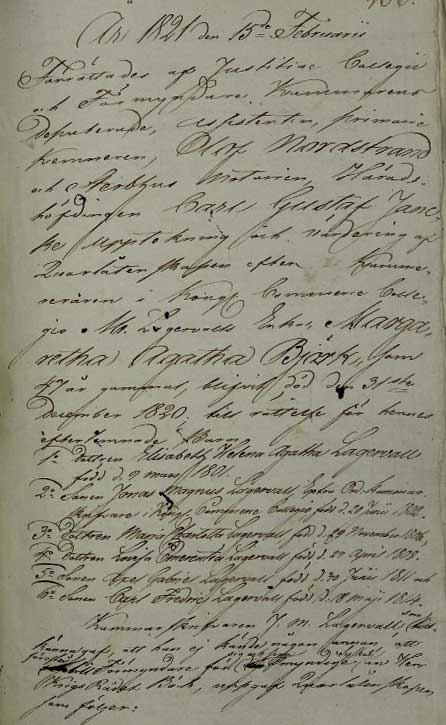 År 1821 den 15de Februarii
Förrättades af Justitiae Collegii
och Förmyndare Kammarens
Deputerade, Assistenten, primarie
Kemneren, Olof Nordstrand
och Notarien Härads-
höfdingen Carl Gustaf Janc-
ke Uppteckning och värdering af
Quarlåtenskapen efter Kamme-
reraren i Kongl Commerce Colle-
gio M. Lagervalls Enka, Marga-
retha Agatha Björk, som
47 år gammal, blifvit död den 31ste
December 1820, till rättelse för hennes
efterlemnade Barn
1o Dottren Elisabeth Helena Agatha Lagervall
född d. 9 mars 1801.
2o Sonen Jonas Magnus Lagervall, Extra Ord. Kammar
Skrifvare i Kongl Commerce Collegio född d. 20 Junii 1802.
3o Dottren Maria Charlotta Lagervall född d. 29 November 1806,
4o Dottren Lovisa Emerentia Lagervall född d. 27 April 1808.
5o Sonen Axel Gabriel Lagervall, född d. 30 Junii 1811 och
6o Sonen Carl Fredric Lagervall född d. 18 Maji 1814.
Kammarskrifvaren J. M. Lagervall
att han ej kände någon annan, att
Förmyndare för omyndige, än Herr
Krigs Rådet Böök, uppgaf Quarlåtenskapen
som följer: